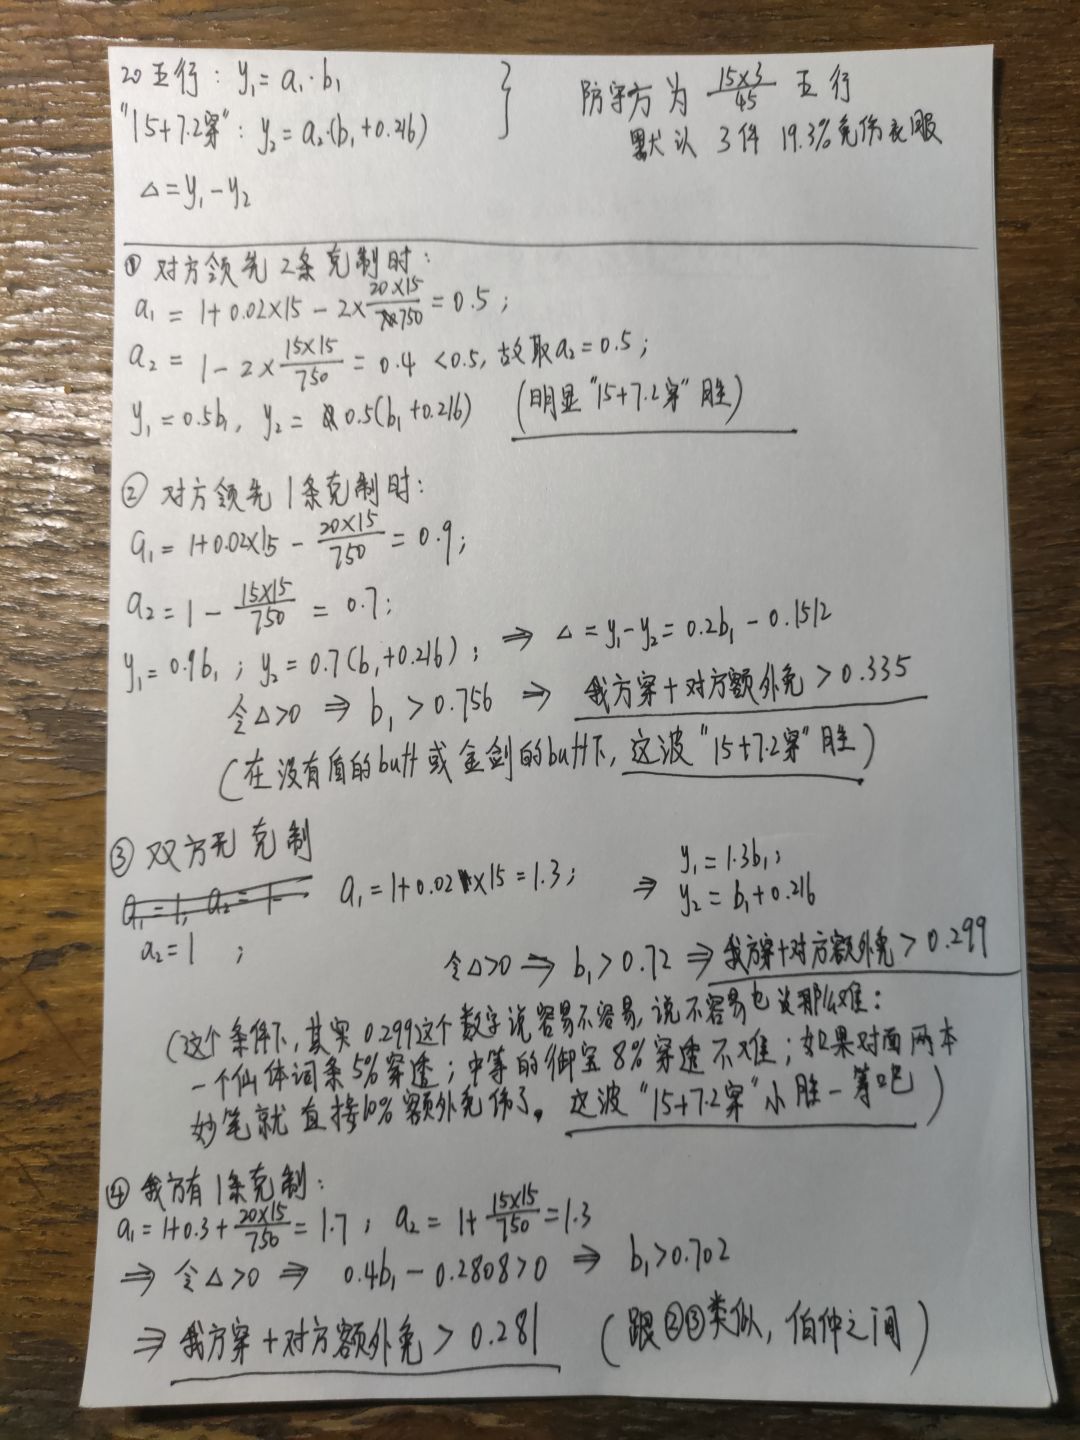 20五行: y₁=a₁·b₁
"15+7.2穿": y₂=a₂·(b₁+0.216)
防守方为 15×3/45 五行
默认 3件 19.3%免伤衣服
△=y₁-y₂
① 对方领先2条克制时:
a₁ = 1+0.02×15 - 2×20×15/750 = 0.5;
a₂ = 1-2×15×15/750 = 0.4 <0.5, 故取a₂=0.5;
y₁=0.5b₁, y₂= 0.5(b₁+0.216) (明显"15+7.2穿"胜)
② 对方领先1条克制时:
a₁=1+0.02×15 - 20×15/750 = 0.9;
a₂=1-15×15/750 = 0.7;
y₁=0.9b₁; y₂=0.7(b₁+0.216); ⇒ △=y₁-y₂=0.2b₁-0.1512
令△>0 ⇒ b₁>0.756 ⇒ 我方穿+对方额外免>0.335
(在没有盾的buff或金剑的buff下,这波"15+7.2穿"胜)
③ 双方无克制
a₁=1, a₂=1
a₁=1+0.02×15=1.3; ⇒ y₁=1.3b₁;
y₂=b₁+0.216
a₂=1;
令△>0 ⇒ b₁>0.72 ⇒ 我方穿+对方额外免>0.299
(这个条件下,其实0.299这个数字说容易不容易,说不容易也没那么难:
一个仙体词条5%穿透;中等的御宝8%穿透不难;如果对面两本
妙笔就直接10%额外免伤了。这波"15+7.2穿"小胜一筹吧)
④ 我方有1条克制:
a₁=1+0.3+20×15/750=1.7; a₂=1+15×15/750=1.3
⇒ 令△>0 ⇒ 0.4b₁-0.2808>0 ⇒ b₁>0.702
⇒ 我方穿+对方额外免>0.281 (跟②③类似,伯仲之间)